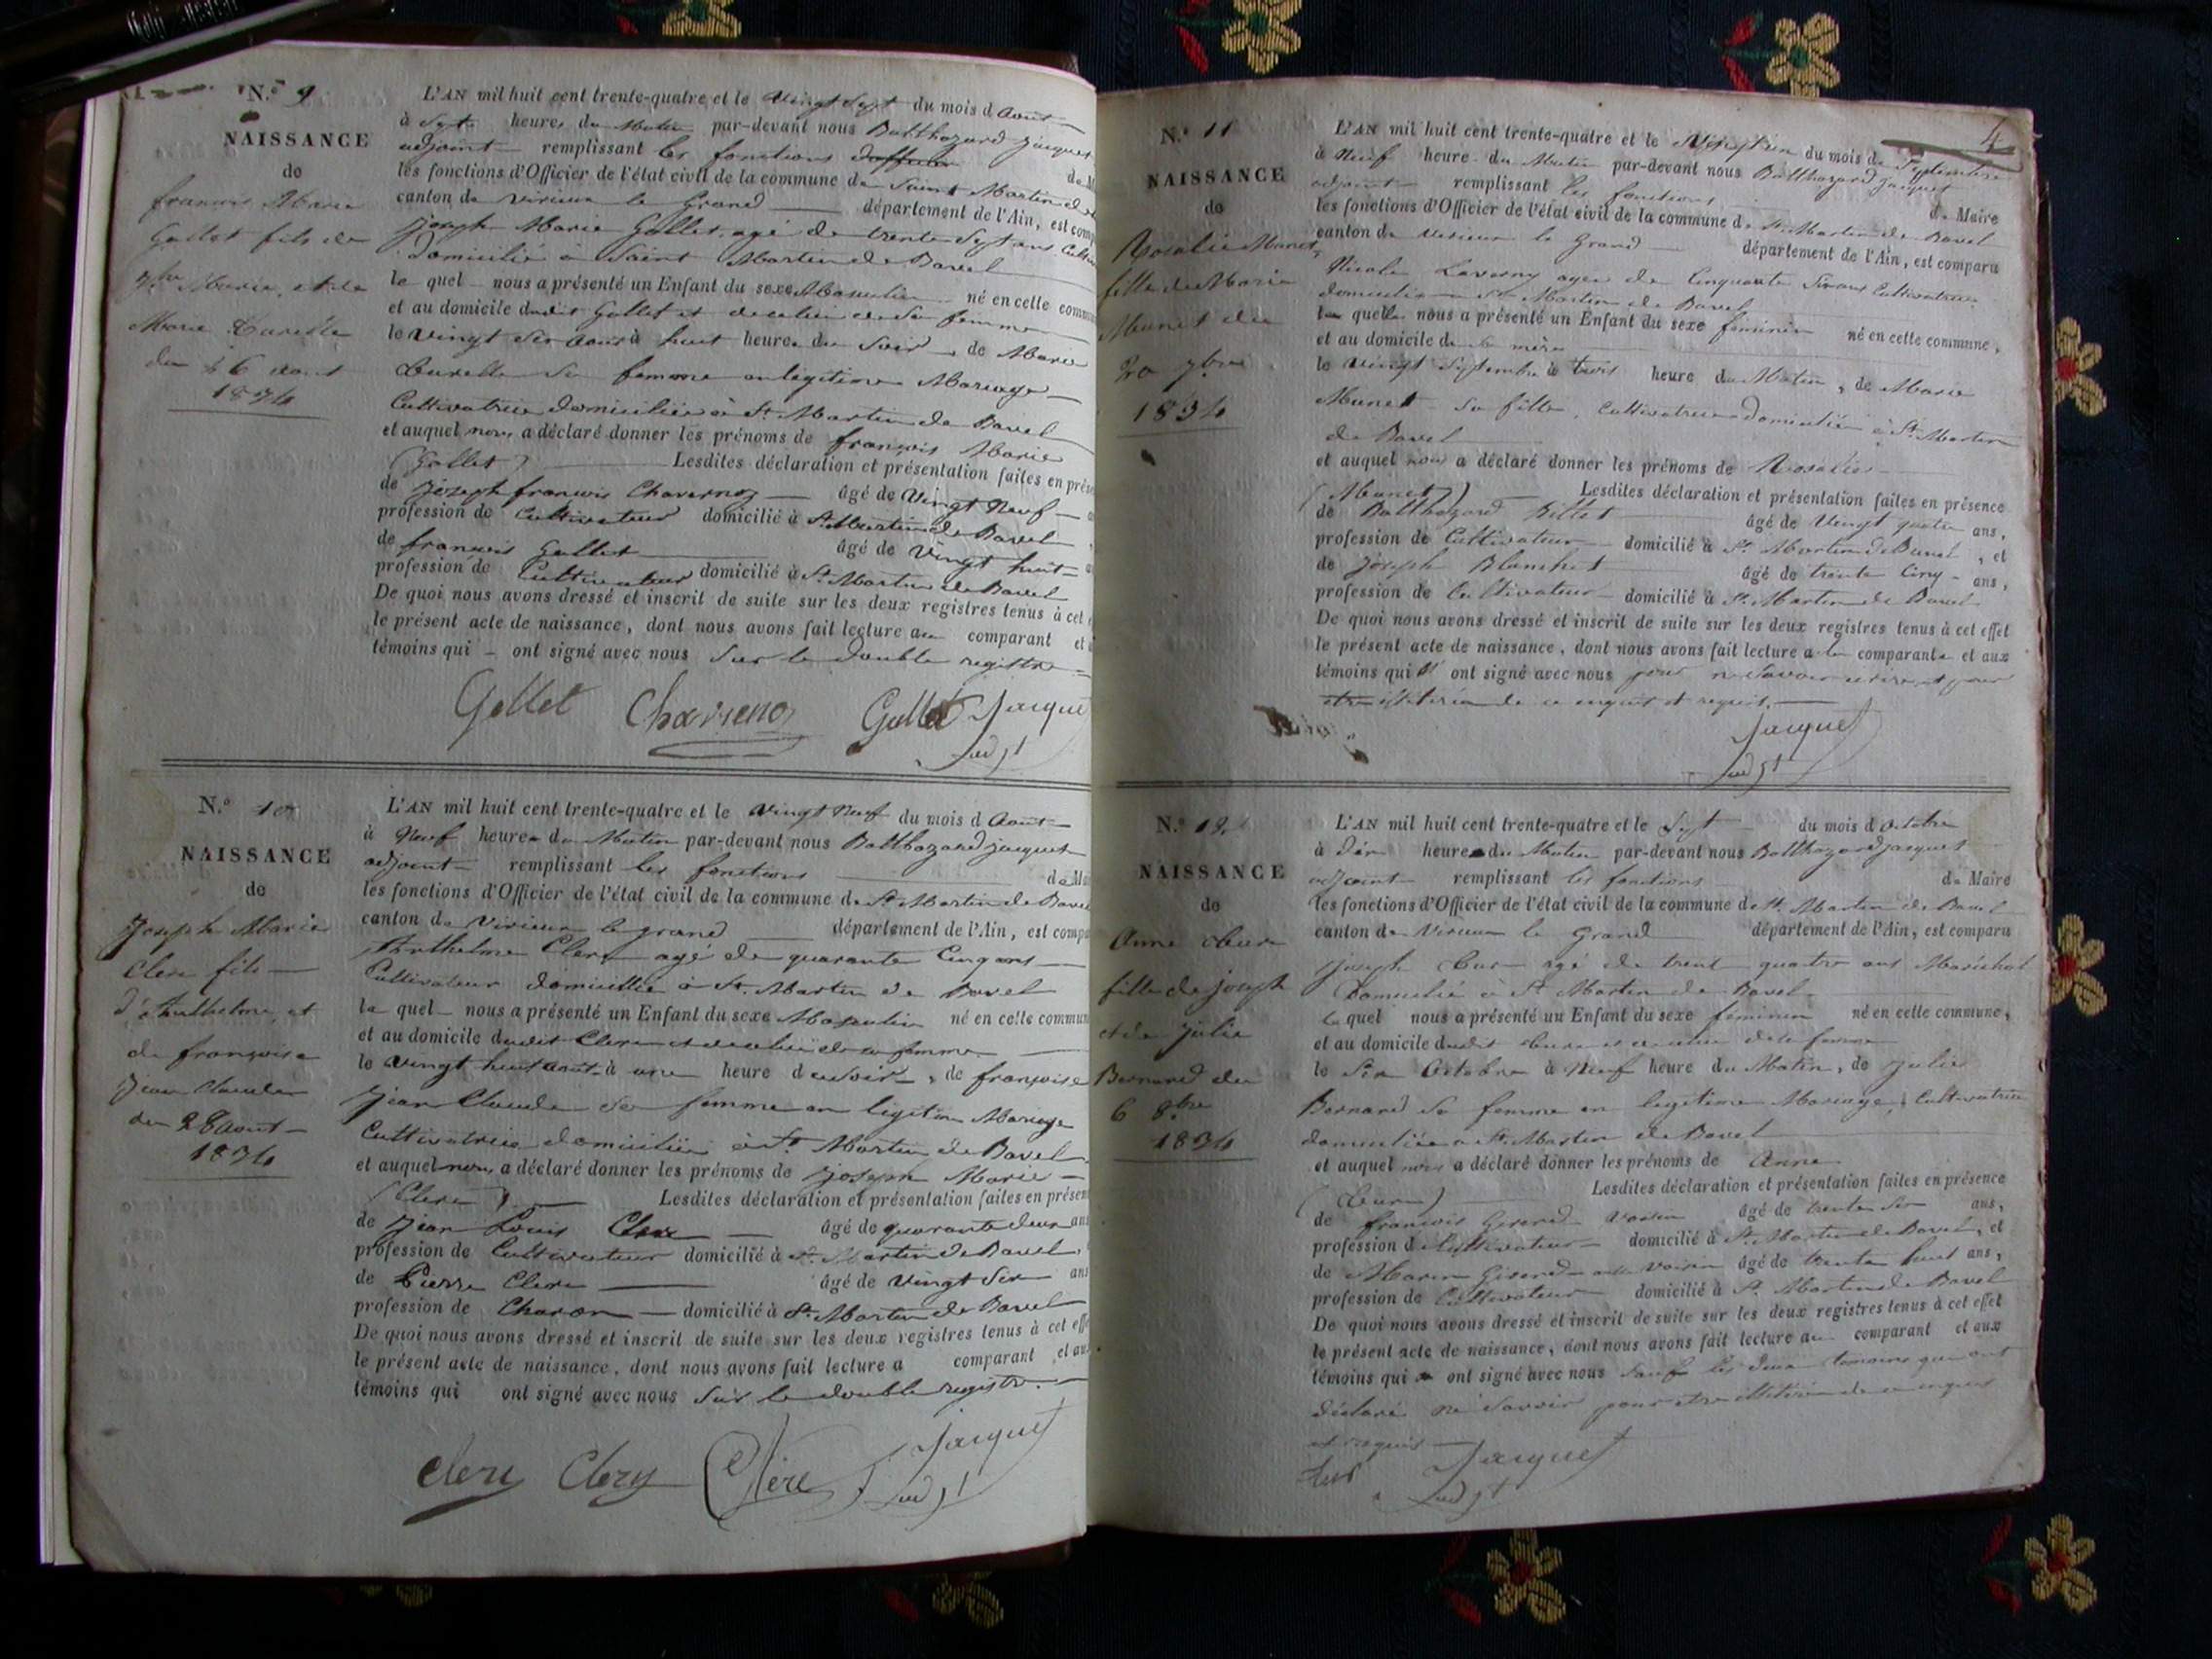 N.º 9
NAISSANCE
de
françois Marie
Gallet fils de
Marie
du 26 aout
1834
L'AN mil huit cent trente-quatre et le Vingt Sept du mois d'Aout
à Sept heures du Matin par-devant nous Balthazard Jacquet
adjoint remplissant les fonctions
les fonctions d'Officier de l'état civil de la commune de Saint Martin de
canton de virieux le Grand département de l'Ain, est comp
Joseph Marie Gallet agé de trente Sept ans
domicilié à Saint Martin de Bavel
le quel nous a présenté un Enfant du sexe Masculin né en celle commu
et au domicile dudit Gallet et de celui de Sa femme
le Vingt Six aout à huit heures du Soir, de Marie
Sa femme en légitime Mariage
Cultivatrice domiciliée à St. Martin de Bavel
et auquel nous a déclaré donner les prénoms de françois Marie
(Gallet) Lesdites déclaration et présentation faites en prése
de Joseph françois Chavernoz âgé de Vingt Neuf
profession de Cultivateur domicilié à St Martin de Bavel
de françois Gallet âgé de Vingt huit
profession de Cultivateur domicilié à St Martin de Bavel
De quoi nous avons dressé et inscrit de suite sur les deux registres tenus à cet
le présent acte de naissance, dont nous avons fait lecture au comparant et
témoins qui ont signé avec nous Sur le double registre
Gallet Gallet Jacquet
adjt
N.º 10
NAISSANCE
de
Joseph Marie
Clerc fils
d'Anthelme et
de françoise
Jean Claude
du 28 aout
1834
L'AN mil huit cent trente-quatre et le Vingt Neuf du mois d'Aout
à Neuf heures du Matin par-devant nous Balthazard Jacquet
adjoint remplissant les fonctions de Ma
les fonctions d'Officier de l'état civil de la commune de St Martin de Bavel
canton de Virieux le grand département de l'Ain, est compa
Anthelme Clerc agé de quarante Cinq ans
Cultivateur domicillié à St. Martin de Bavel
le quel nous a présenté un Enfant du sexe Masculin né en celle commun
et au domicile dudit Clerc et de celui de sa femme
le Vingt huit aout à une heure du soir, de françoise
Jean Claude sa femme en legitime Mariage
Cultivatrice domiciliée à St Martin de Bavel
et auquel nous a déclaré donner les prénoms de Joseph Marie
(Clerc) Lesdites déclaration et présentation faites en présen
de Jean Louis Clerc âgé de quarante deux ans
profession de Cultivateur domicilié à St. Martin de Bavel
de Pierre Clerc âgé de Vingt Six ans
profession de Charon domicilié à St. Martin de Bavel
De quoi nous avons dressé et inscrit de suite sur les deux registres tenus à cet effe
le présent acte de naissance, dont nous avons fait lecture a comparant et au
témoins qui ont signé avec nous Sur le double registre.
Clerc Jacquet
adjt
4
N.º 11
NAISSANCE
de
Rosalie Munet
fille de Marie
Munet du
20 7bre
1834
L'AN mil huit cent trente-quatre et le Vingt un du mois de Septembre
à Neuf heure du Matin par-devant nous Balthazard Jacquet
adjoint remplissant les fonctions de Maire
les fonctions d'Officier de l'état civil de la commune de St Martin de Bavel
canton de Virieux le Grand département de l'Ain, est comparu
Nicole agée de Cinquante Six ans Cultivatrice
domiciliée St Martin de Bavel
la quelle nous a présenté un Enfant du sexe féminin né en celle commune,
et au domicile de la mère
le Vingt Septembre à trois heure du Matin, de Marie
Munet Sa fille Cultivatrice domiciliée à St. Martin
de Bavel
et auquel nous a déclaré donner les prénoms de Rosalie
(Munet) Lesdites déclaration et présentation faites en présence
de Balthazard Billet âgé de Vingt quatre ans,
profession de Cultivateur domicilié à St. Martin de Bavel, et
de Joseph Blanchet âgé de trente Cinq ans,
profession de Cultivateur domicilié à St. Martin de Bavel
De quoi nous avons dressé et inscrit de suite sur les deux registres tenus à cet effet
le présent acte de naissance, dont nous avons fait lecture a la comparante et aux
témoins qui n' ont signé avec nous pour ne Savoir
de ce enquis et requis.
Jacquet
adjt
N.º 12
NAISSANCE
de
Anne
fille de joseph
et de Julie
Bernard du
6 8bre
1834
L'AN mil huit cent trente-quatre et le Sept du mois d'Octobre
à dix heures du Matin par-devant nous Balthazard Jacquet
adjoint remplissant les fonctions de Maire
les fonctions d'Officier de l'état civil de la commune de St. Martin de Bavel
canton de Virieux le Grand département de l'Ain, est comparu
Joseph agé de trente quatre ans Maréchal
Domicilié à St Martin de Bavel
le quel nous a présenté un Enfant du sexe féminin né en celle commune,
et au domicile dudit et de celui de la femme
le Six Octobre à Neuf heure du Matin, de Julie
Bernard Sa femme en legitime Mariage, Cultivatrice
domiciliée à St. Martin de Bavel
et auquel nous a déclaré donner les prénoms de Anne
Lesdites déclaration et présentation faites en présence
de françois Girerd voisin âgé de trente Six ans,
profession de Cultivateur domicilié à St. Martin de Bavel, et
de Girerd voisin âgé de trente huit ans,
profession de Cultivateur domicilié à St. Martin de Bavel
De quoi nous avons dressé et inscrit de suite sur les deux registres tenus à cet effet
le présent acte de naissance, dont nous avons fait lecture au comparant et aux
témoins qui ont signé avec nous Sauf les deux temoins qui ont
déclaré ne Savoir pour être illitéré de ce enquis
et requis
Jacquet
adjt